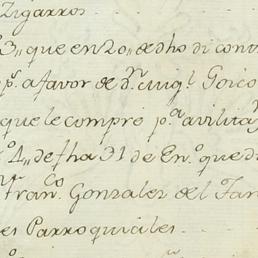 Zigarros
3,, que en 20,, de dho di contr
p.r a favor de d.n Mig.l Goico
que le compré p.a avilitaz
4,, de fha 31 de En.o que d
Fran.co Gonzalez del Tar
es Parroquiales